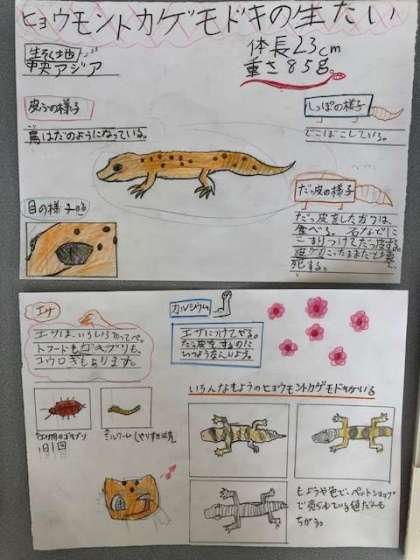 ヒョウモントカゲモドキの生たい
生そく地
中央アジア
体長23cm
重さ85g
皮ふの様子
鳥はだのようになっている。
しっぽの様子
でこぼこしている。
目の様子
だっ皮の様子
だっ皮をしたカワは、
食べる。石などに
こすりつけてだっ皮する。
死する。
エサ
エサは、いろいろあってペッ
トフードもゴキブリも、
コウロギもあります。
カルシウム
エサにつけてやる。
だっ皮をするのに
ひつようなんだよう。
いろんなもようのヒョウモントカゲモドキがいる
エサ用のゴキブリ
1日1回
ミルワーム
もようや色で、ペットショップ
で売られている値だんも
ちがう。